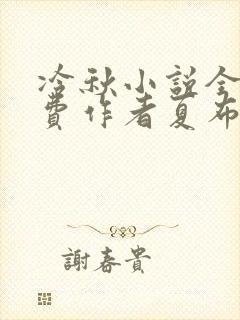 冷秋小説全
費作者夏布
謝春貴